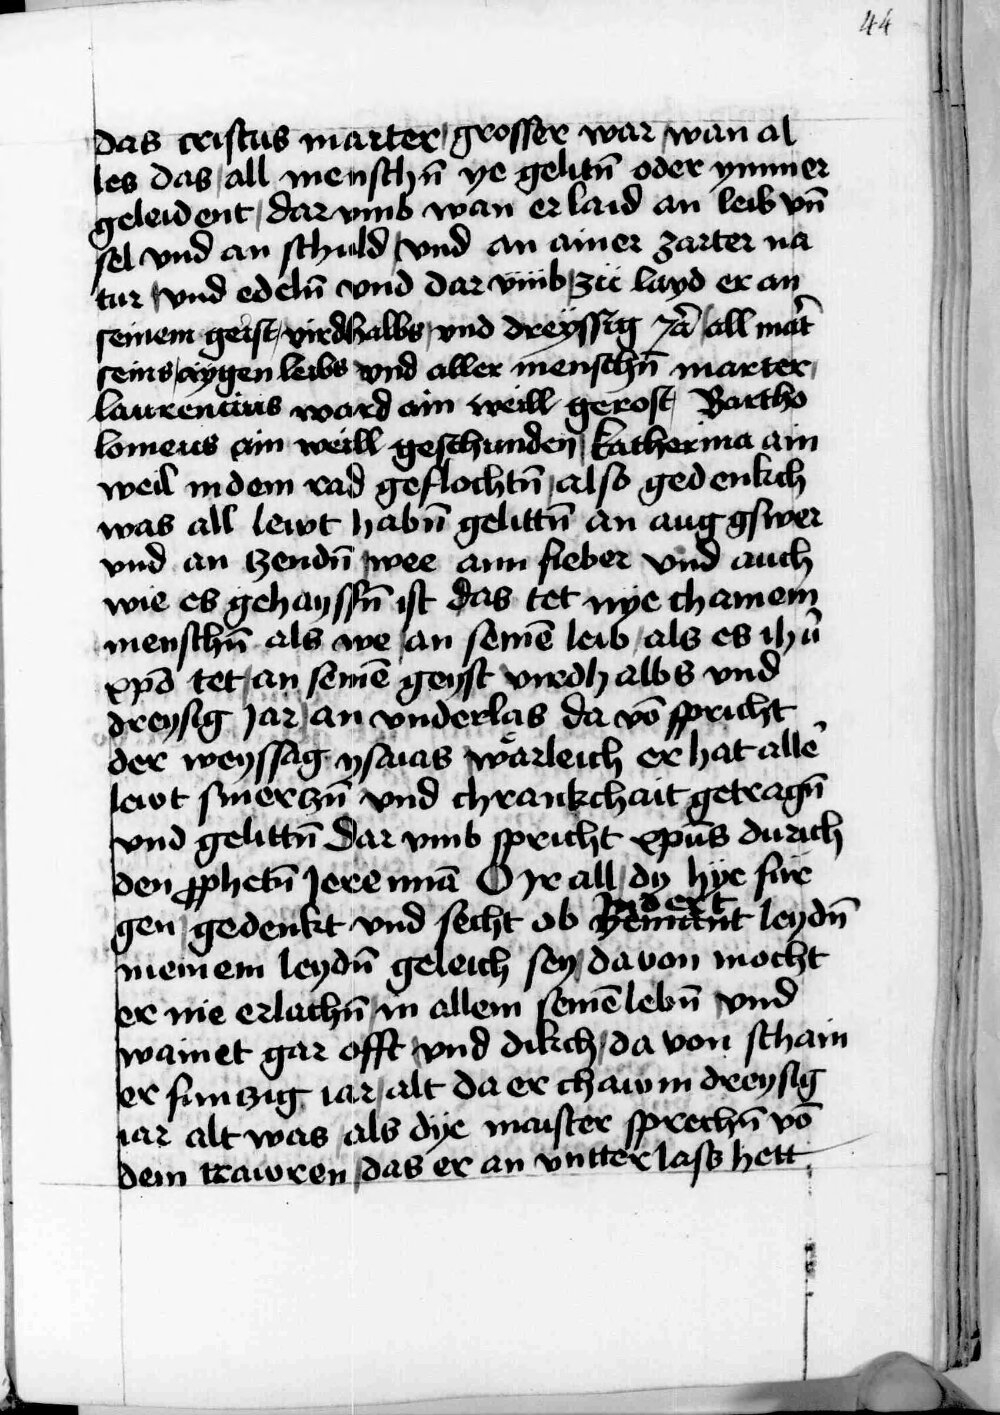 44
das cristus marter / grosser war / wan al
les das / all menschn̄ ye gelitn̄ oder ymmer
geleident / dar vmb wan er laid an leib vn̄
sel vnd an schuld / vnd an ainer zarter na
tur / vnd edeln̄ vnd dar vmb / zū layd er an
seinem geist / virdhalbs / vnd dreyssig Jā / all mať
seins / aygen leibs vnd aller menschn̄ marter /
laurencius ward ain weill gerost / Bartho
lomeus ain weill geschunden / katherina ain
weil in dem rad geflochtn̄ / also gedenkch
was all lewt habn̄ gelittn̄ an aug gswer
vnd an tzendn̄ / wee ann fieber vnd auch
wie es gehayssn̄ ist das tet nye chainem
menschn̄ als we / an seinē leib / als es ihū
xpō tet / an seinē geyst virdhalbs vnd
dreysig Jar / an vnderlas da vō spricht
der weyssag ysaias wärleich er hat alle
lewt smerczn̄ vnd chrankchait getragn̄
vnd gelittn̄ Dar vmb spricht xpūs durich
den prophetn̄ Jeremiā O Jr all / dy hye für
gen / gedenkt vnd secht ob yemant Jndert leydn̄
meinem leydn̄ geleich sey / da von mocht
er nie erlachn̄ / in allem seinē lebn̄ vnd
wainet gar offt / vnd dikch / da von schain
er funczig iar / alt da er chawm dreysig
iar alt was / als dye maister sprechn̄ vō
dem trawren / das er an vntter lass hett /